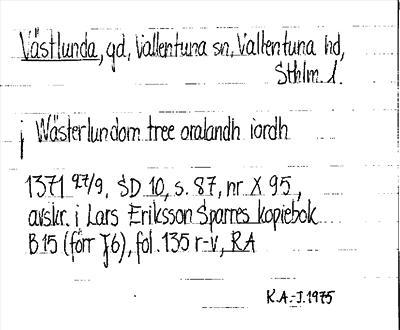 Västlunda, gd, Vallentuna sn, Vallentuna hd,
Sthlm. l.
j Wästerlundom tree oralandh iordh
1371 27/9, SD 10, s. 87, nr X 95,
avskr. i Lars Eriksson Sparres kopiebok
B 15 (förr J6), fol. 135 r-v, RA
K.A.-J. 1975